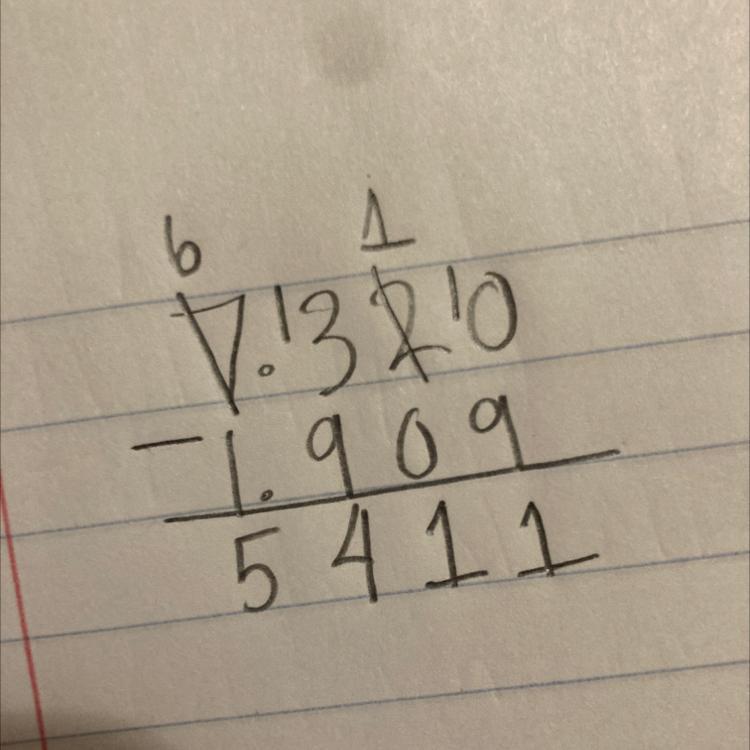 6 1
7.13210
- 1.909
5411